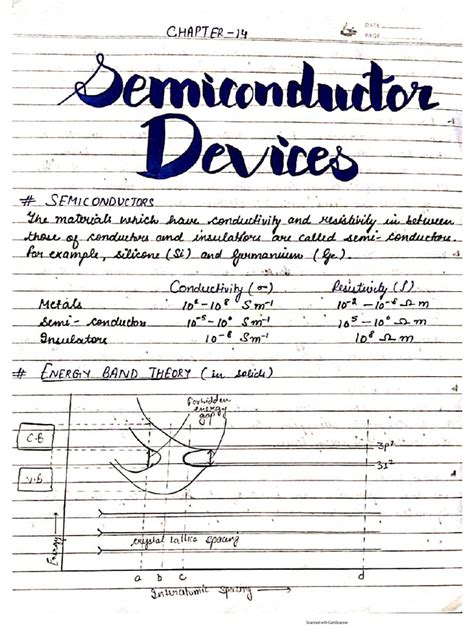 CHAPTER-14
DATE
PAGE
Semiconductor
Devices
# SEMICONDUCTORS
The materials which have conductivity and resistivity in between
those of conductors and insulators are called semi-conductors.
For example, silicone (Si) and germanium (Ge).
Conductivity (σ) Resistivity (ρ)
Metals 10² - 10⁸ Sm⁻¹ 10⁻² - 10⁻⁸ Ω m
Semi-conductors 10⁻⁵ - 10⁰ Sm⁻¹ 10⁵ - 10⁰ Ω m
Insulators 10⁻⁸ Sm⁻¹ 10⁸ Ω m
# ENERGY BAND THEORY (in solids)
Forbidden
energy
gap
C.B
3p²
3s²
V.B
crystal lattice spacing
Energy
a b c d
Interatomic spacing
Scanned with CamScanner